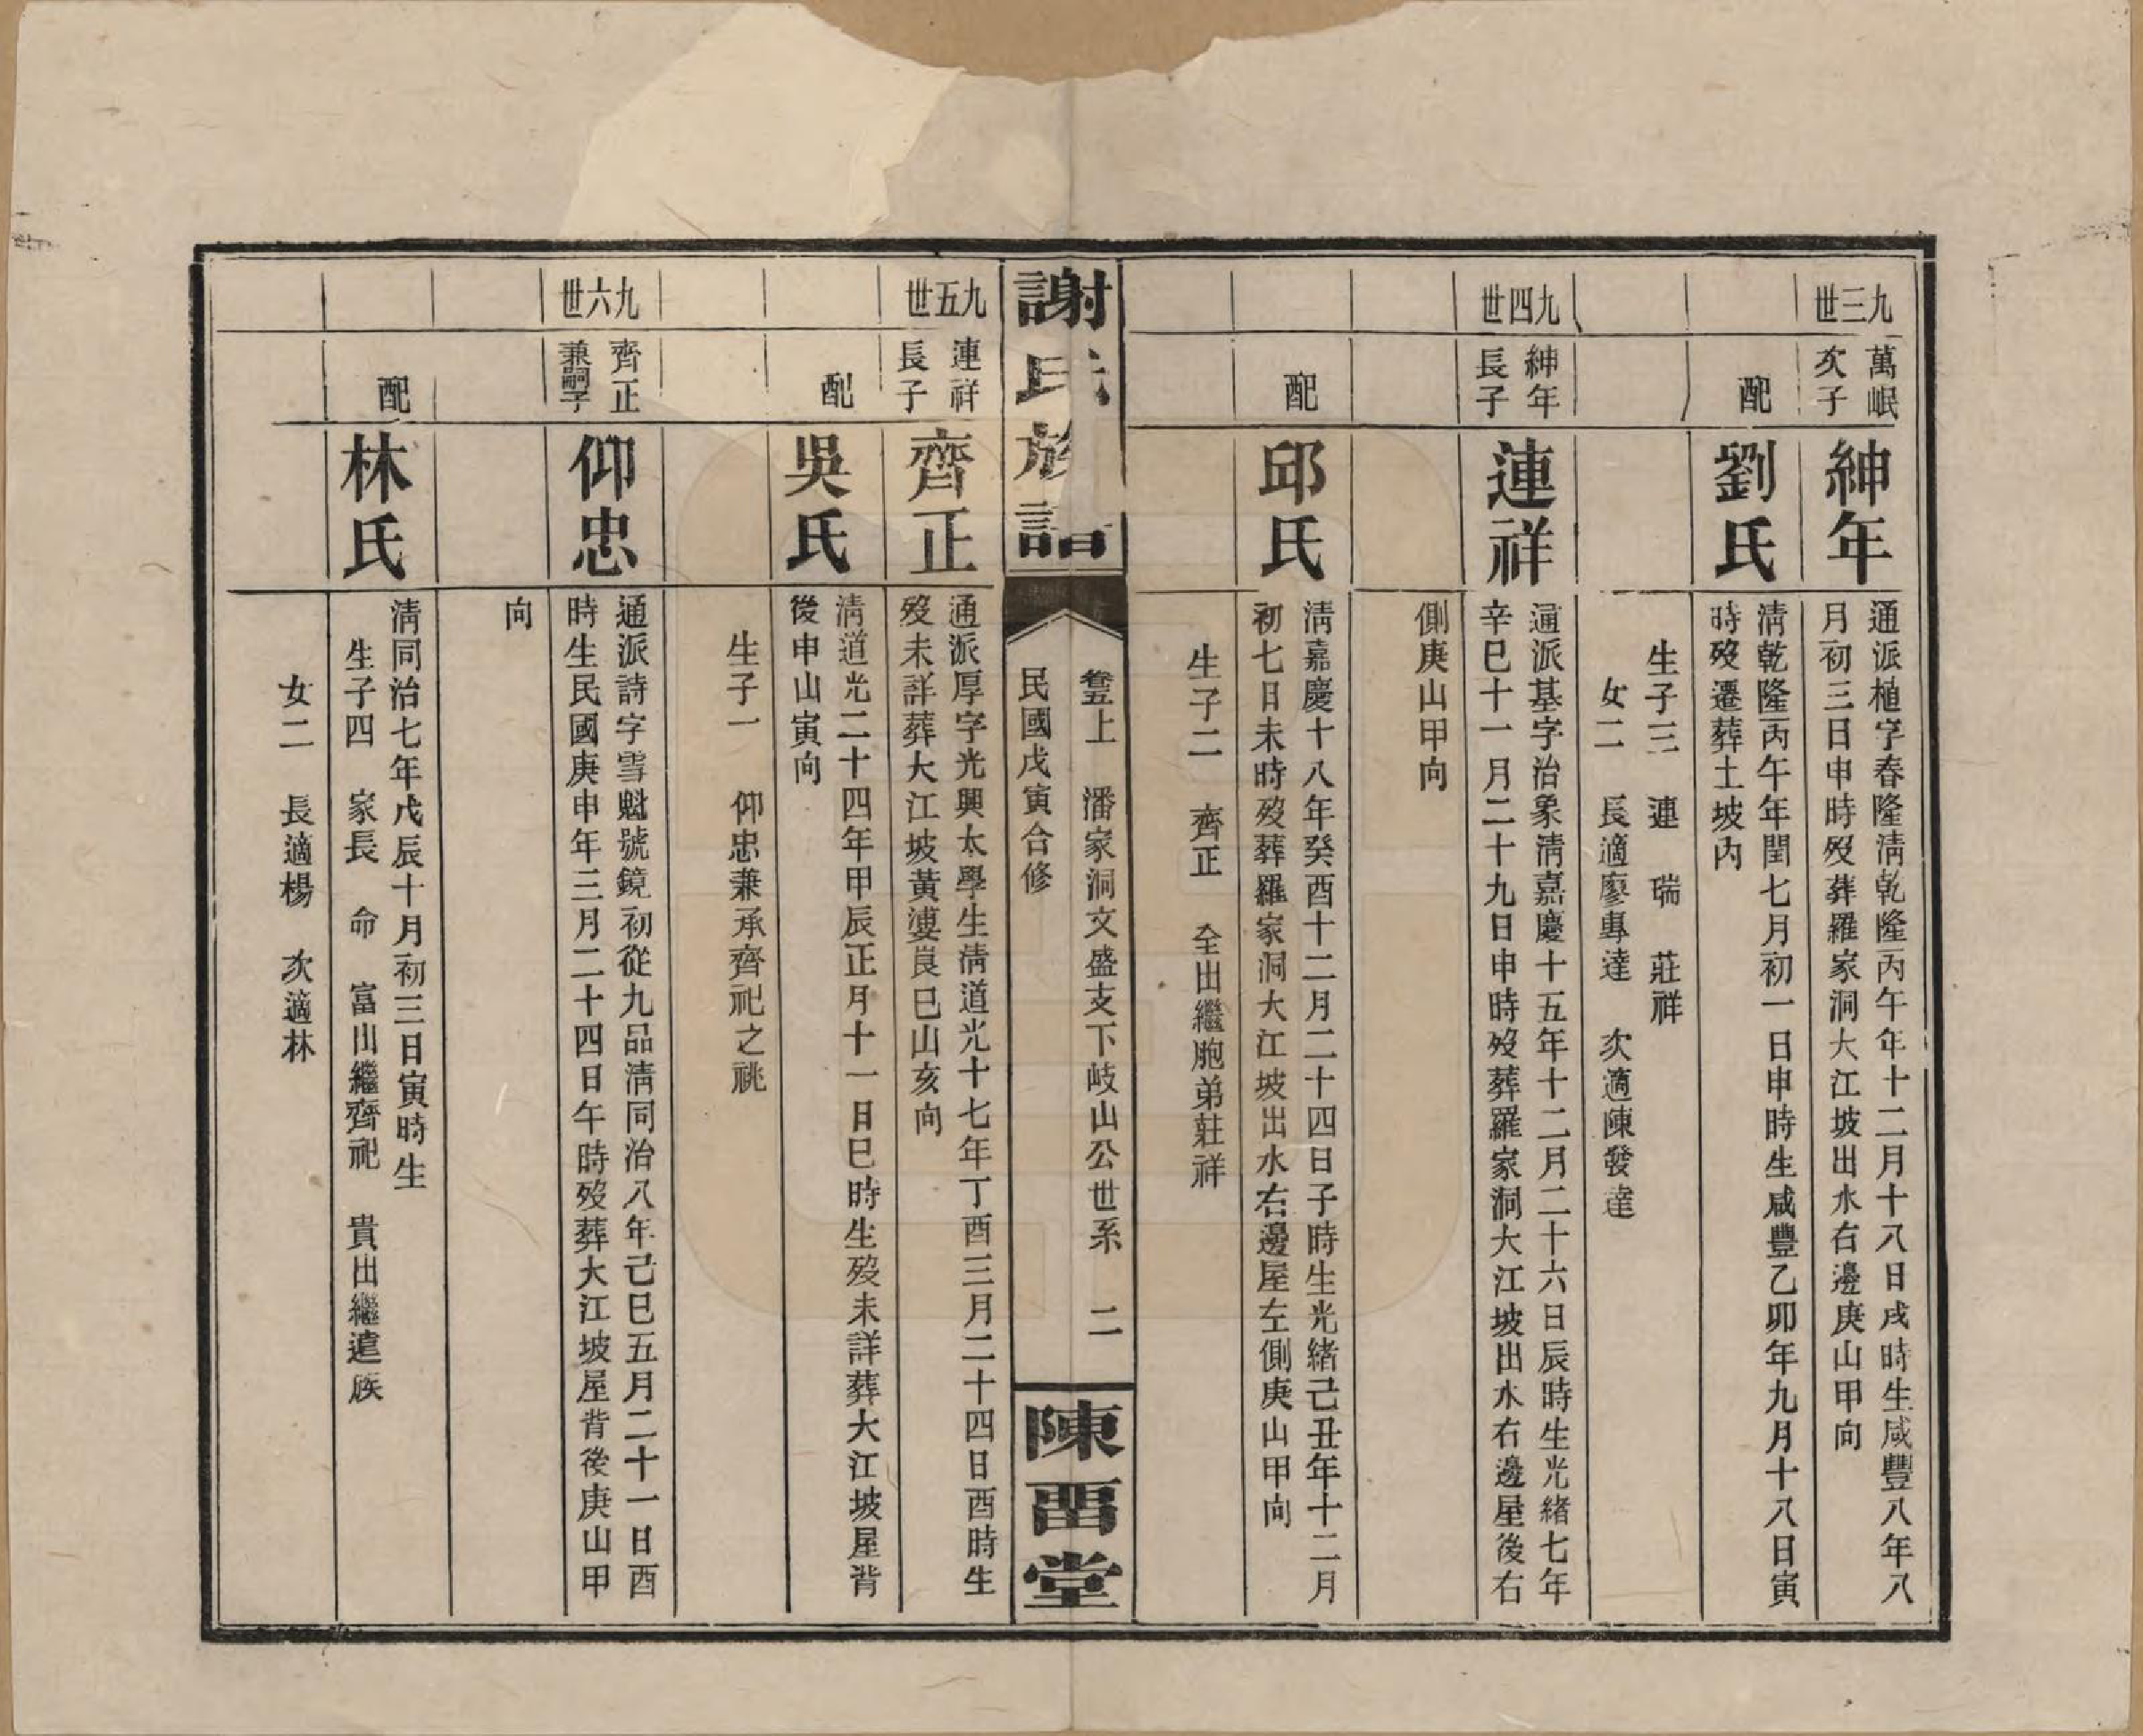 九三世
萬岷
次子
紳年
通派植字春隆淸乾隆丙午年十二月十八日戌時生咸豐八年八
月初三日申時歿葬羅家洞大江坡出水右邊庚山甲向
配
劉氏
淸乾隆丙午年閏七月初一日申時生咸豐乙卯年九月十八日寅
時歿遷葬土坡內
生子三 連 瑞 莊祥
女二 長適廖專達 次適陳發達
九四世
紳年
長子
連祥
通派基字治象淸嘉慶十五年十二月二十六日辰時生光緒七年
辛巳十一月二十九日申時歿葬羅家洞大江坡出水右邊屋後右
側庚山甲向
配
邱氏
淸嘉慶十八年癸酉十二月二十四日子時生光緒己丑年十二月
初七日未時歿葬羅家洞大江坡出水右邊屋左側庚山甲向
生子二 齊正 全出繼胞弟莊祥
謝氏族譜
卷五上 潘家洞文盛支下岐山公世系 二
民國戊寅合修
陳畱堂
九五世
連祥
長子
齊正
通派厚字光興太學生淸道光十七年丁酉三月二十四日酉時生
歿未詳葬大江坡黃㜢崀巳山亥向
配
吳氏
淸道光二十四年甲辰正月十一日巳時生歿未詳葬大江坡屋背
後申山寅向
生子一 仰忠兼承齊祀之祧
九六世
齊正
兼嗣子
仰忠
通派詩字雪魁號鏡初從九品淸同治八年己巳五月二十一日酉
時生民國庚申年三月二十四日午時歿葬大江坡屋背後庚山甲
向
配
林氏
淸同治七年戊辰十月初三日寅時生
生子四 家長 命 富出繼齊祀 貴出繼遣族
女二 長適楊 次適林